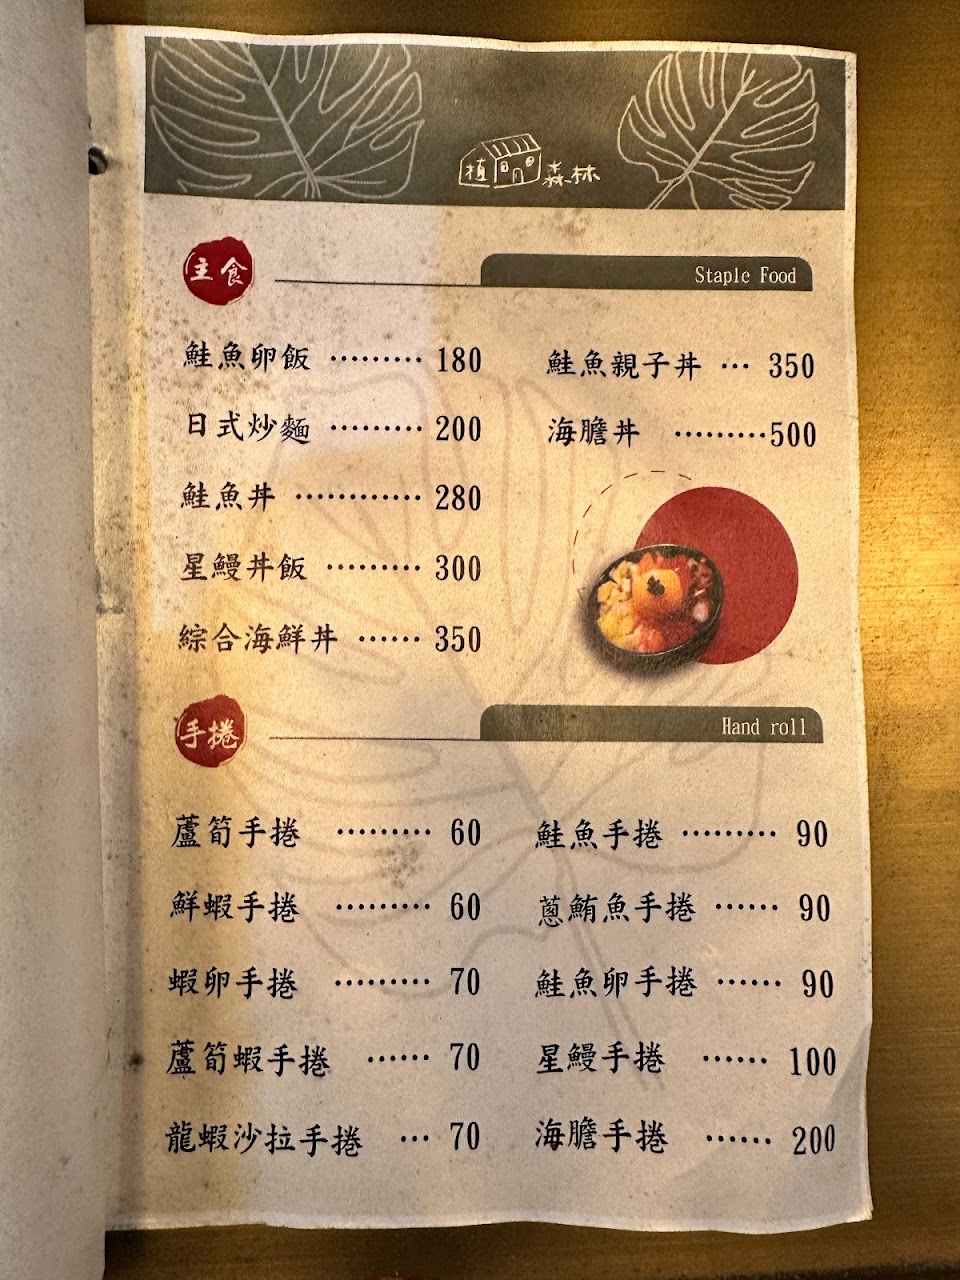 植 森林
主食
Staple Food
鮭魚卵飯 ········· 180
日式炒麵 ········· 200
鮭魚丼 ············ 280
星鰻丼飯 ········· 300
綜合海鮮丼 ······ 350
鮭魚親子丼 ··· 350
海膽丼 ········· 500
手捲
Hand roll
蘆筍手捲 ········· 60
鮮蝦手捲 ········· 60
蝦卵手捲 ········· 70
蘆筍蝦手捲 ······ 70
龍蝦沙拉手捲 ··· 70
鮭魚手捲 ········· 90
蔥鮪魚手捲 ······ 90
鮭魚卵手捲 ······ 90
星鰻手捲 ······ 100
海膽手捲 ······ 200